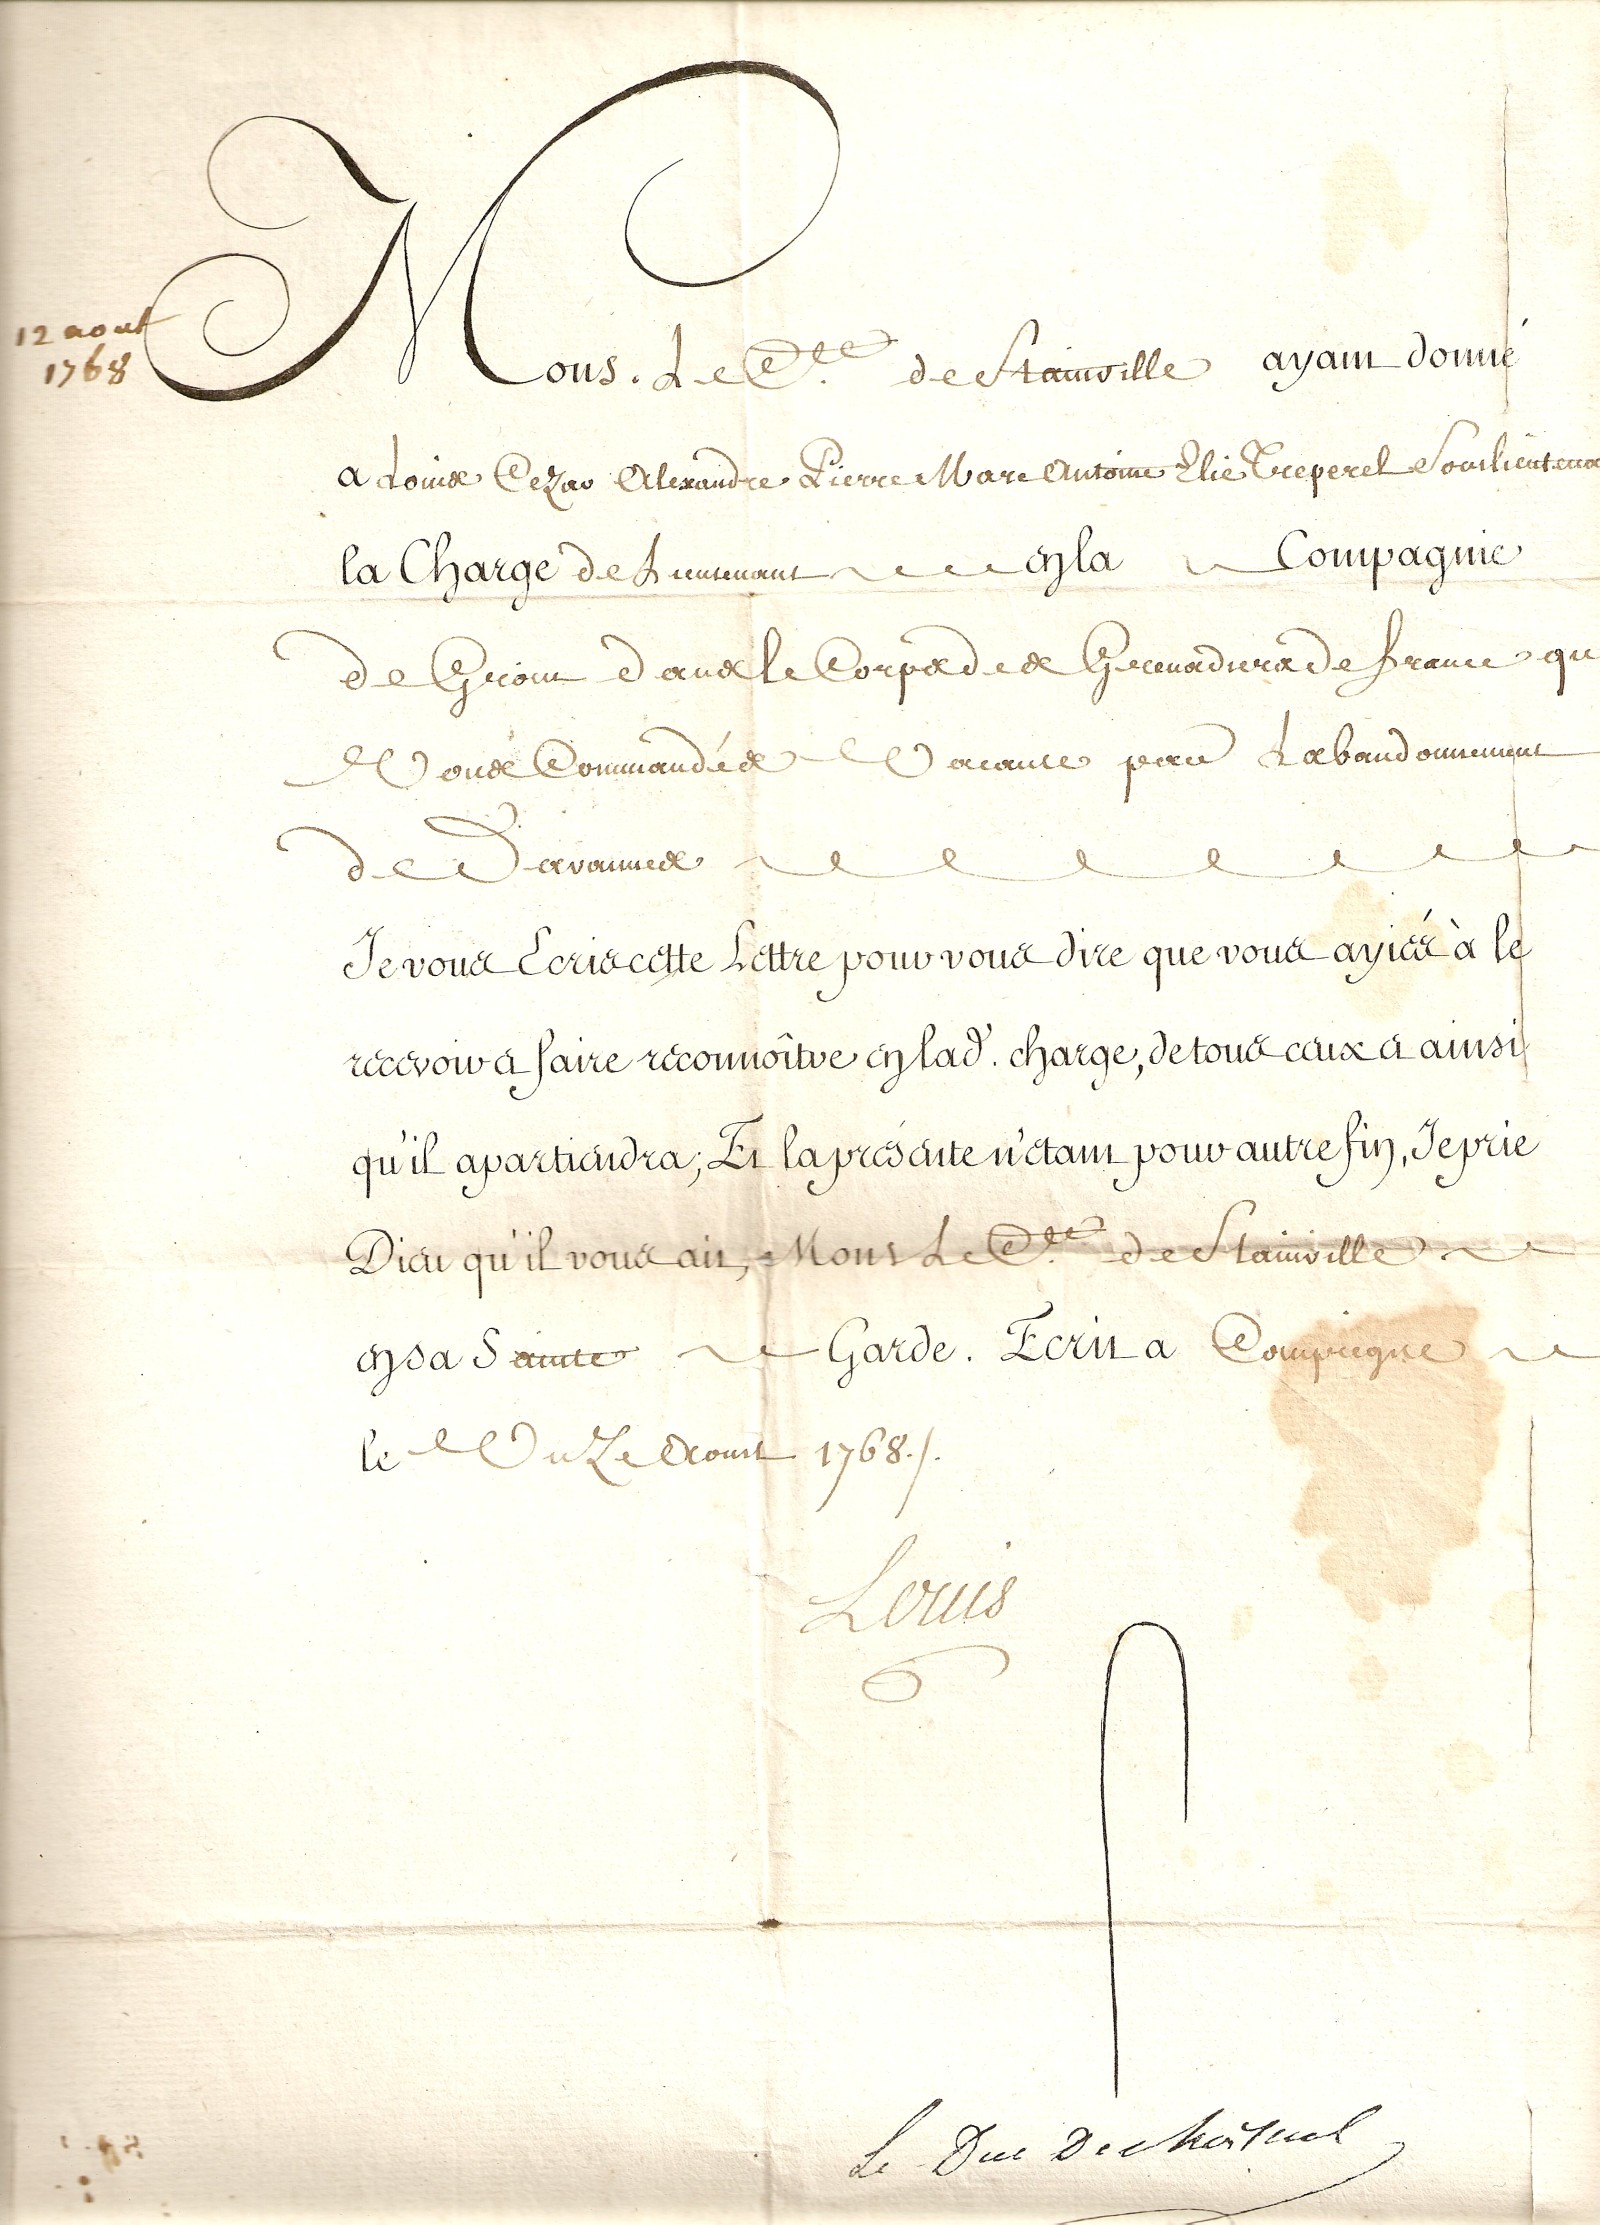 12 aout
1768
Mons. Le C.te de Stainville ayant donné
a Louis Cezar Alexandre Pierre Marc Antoine Elie Treperel Souslieutenant
la Charge de Lieutenant en la Compagnie
de dans le Corps des Grenadiers de france que
Vous Commandés Vacante par Labandonnement
de Davannes
Je vous Ecris cette Lettre pour vous dire que vous ayiés à le
recevoir et faire reconnoître en lad. charge, de tous ceux et ainsi
qu'il apartiendra; Et la présente n'étant pour autre fin, Je prie
Dieu qu'il vous ait, Mons Le C.te de Stainville
en sa Sainte Garde. Ecrit a Compiegne
le Aoust 1768./.
Louis
Le Duc De choiseul